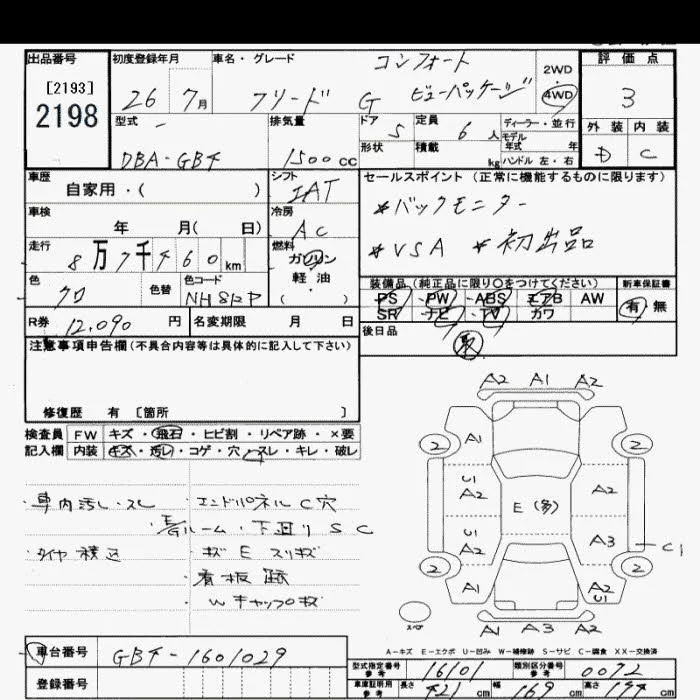 出品番号 初度登録年月 車名・グレード コンフォート 評価点
[2193] 2198
26 7月 フリード G ビューパッケージ 2WD 4WD 3
型式 排気量 ドア 5 定員 6人 ディーラー・並行 外装 内装
モデル年式 年
DBA-GB4 1500cc 形状 積載 kg ハンドル 左・右 D C
車歴 シフト セールスポイント (正常に機能するものに限ります)
自家用・( ) IAT
*バックモニター
車検 冷房
年 月( 日) AC
*VSA *初出品
走行 燃料
8万7千460km ガソリン
色 色替 色コード 軽油 装備品(純正品に限り○をつけてください) 新車保証書
クロ ・( ) PS PW ABS エアB AW 有・無
SR ナビ TV カワ
R券 12,090円 名変期限 月 日 後日品
取
注意事項申告欄(不具合内容等は具体的に記入して下さい)
修復歴 有 〔箇所 〕
検査員 FW キズ・飛石・ヒビ割・リペア跡・×要
記入欄 内装 キズ・汚レ・コゲ・穴・スレ・キレ・破レ
A2 A1 A2
2 A1 2
U1 A2 A2
E(多)
U1 A2 A3 C1
2 A1 A2 U1 2
A1 A3 A2
スペア
・車内汚レ・スレ ・エンドパネルC穴
・E/Gルーム・下廻りSC
・タイヤ積込 ・キズEスリキズ
・看板跡
・Wキャップキズ
A-キズ E-エクボ U-凹み W-補修跡 S-サビ C-腐食 XX-交換済
車台番号 GB4-1601029
登録番号
型式指定番号 参考 16101 類別区分番号 参考 0072
車庫証明用 参考 長さ 421cm 幅 169cm 高さ cm